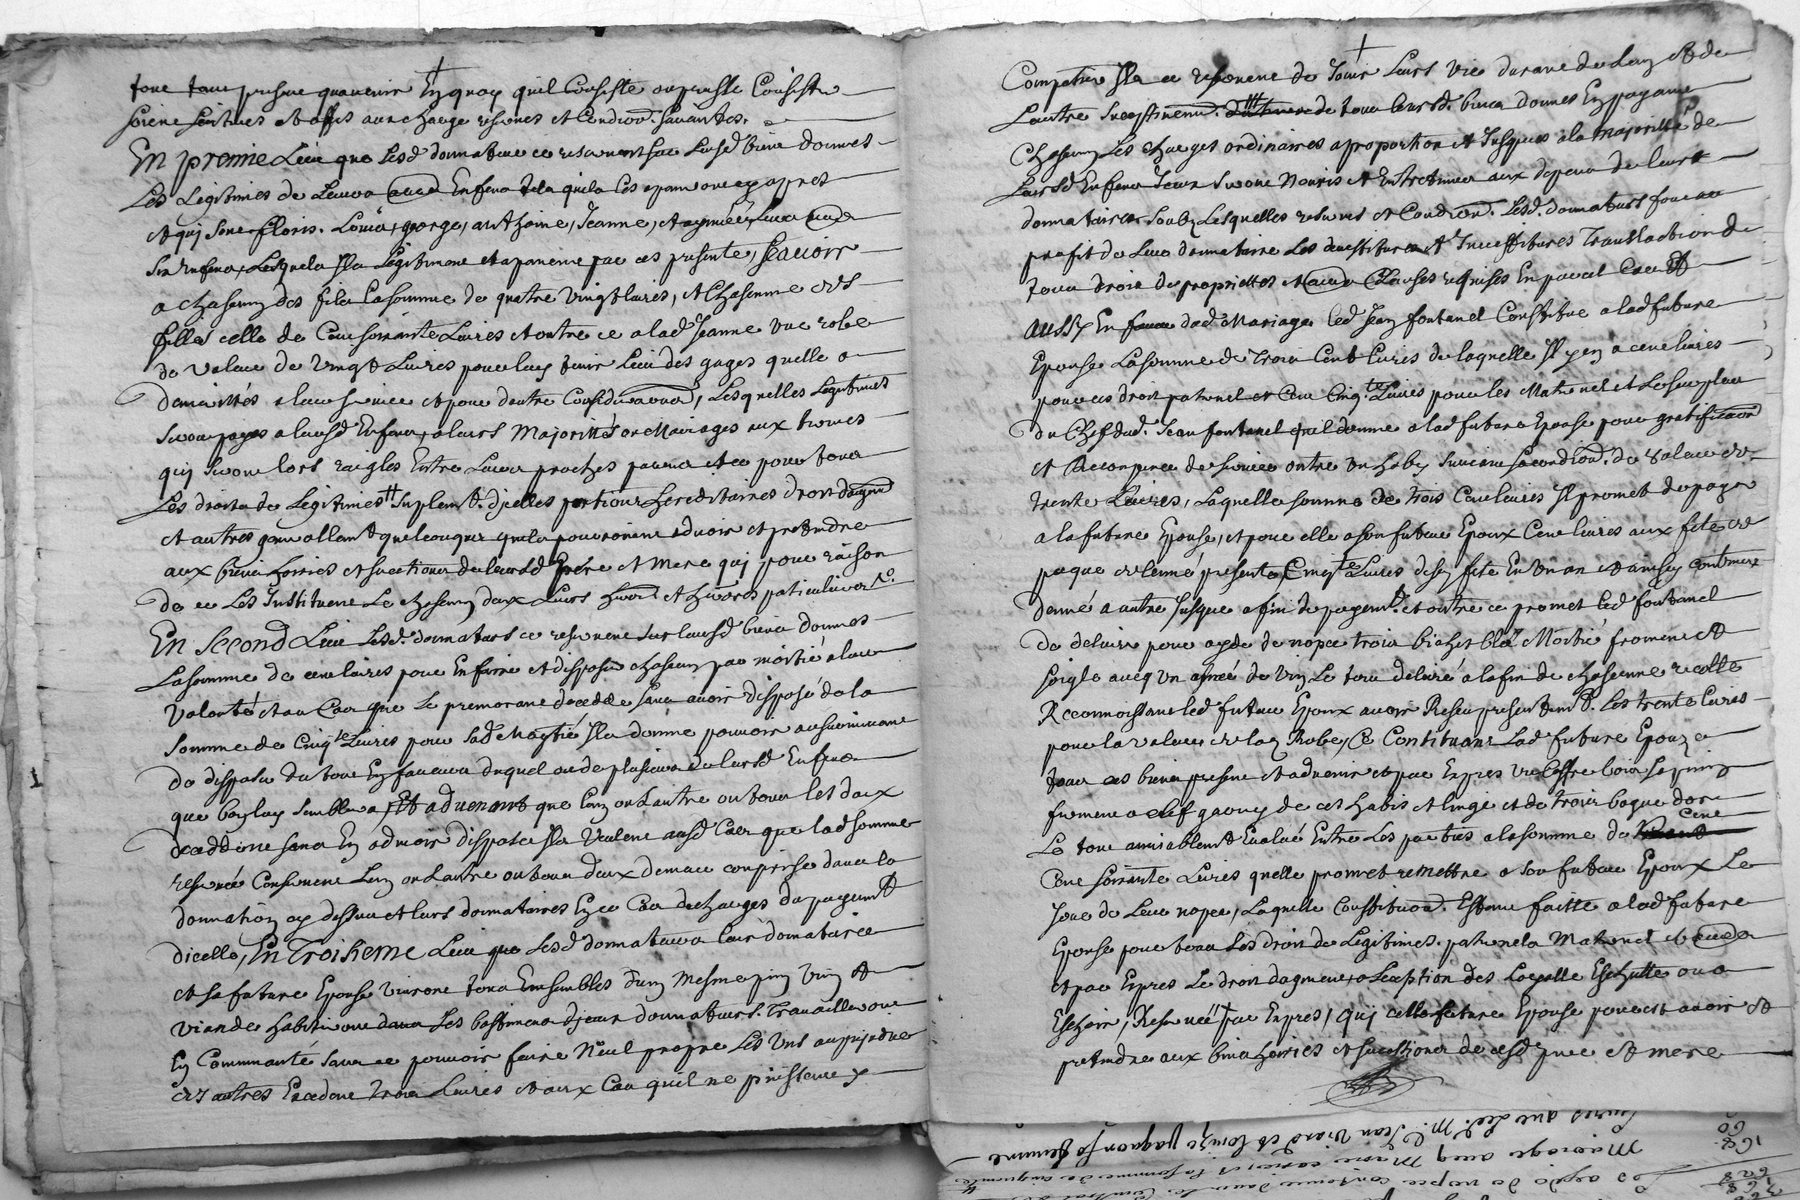 tous tant presens quavenir En quoy quil Consiste ou puisse Consister
soient soubz aux charge reserves et Condiōns suivantes.
En premie Lieu que Lesd donnateurs ce reservent sur Lesd biens donnes
Les Legitimes de Leurs autres Enfens tels quils Les apanent cy apres
et qui sont floris. Louis, george, anthoine, Jeanne, et aymée, Leurs
six Enfens, Lesquels Ils Legitiment et apanent par ces presente, scavoir
a chascun des fils La somme de quatre vingt Livres, et Chascunne des
filles celle de Cent soixante Livres et outre ce a lad Jeanne une robe
de valeur de vingt Livres pour luy tenir Lieu des gages quelle a
a leur service et pour dautre Considerations, Lesquelles Legitimes
seront payes a leursd Enfens, a leurs Majorittés ou Mariages aux termes
qui seront lors reigles Entre Leurs proches parens et ce pour tous
Les droits de Legitimes suplemt. dicelles portions hereditaires droit
et autres quelconques quils pourroient advoir et pretendre
aux biens hoiries et successions de leursd pere et mere qui pour raison
de ce Les Instituent Le chascun deux Leurs et particuliers
En second Lieu Lesd. donnateurs ce reservent sur Leursd biens donnes
La somme de cent livres pour En faire et disposer chascun par moitié a leur
volonté et au Cas que Le premorant decede sans avoir disposé de la
somme de Cinqte Livres pour sad Moytié Ils donne pouvoir au survivant
de disposer du tout En faveur duquel ou de plusieurs de leursd Enfens
que bon luy semblera, Et advenant que lun ou lautre ou tous les deux
decedent sans En advoir disposer Ils Veulent ausd Cas que lad somme
reservée Consernent Lun ou Lautre ou tous deux demeure comprise dans la
donnation cy dessus et leurs donnataires En ce Cas decharges du payement
dicelle, En Troisieme Lieu que Lesd donnateurs Leur donnataire
et sa future Epouse vivront tous Ensembles dun mesme pain vin et
viande habiteront dans Les battimens diceux donnateurs. Travailleront
En Communauté sans ce pouvoir faire Neul propre Les Uns au prejudice
des autres Excedant trois Livres et aux Cas quil ne puissent
Compatir Ils ce reservent de Jouir Leurs vie durant de lun et de
Lautre de tous leursd. biens donnes En payant
Chascun Les charges ordinaires a proportion et Jusques a la majoritté de
Leursd Enfens Iceux seront Nouris et Entretenus aux depens de leurs
donnataires soubz Lesquelles reserves et Condiōns. Lesd. donnateurs font au
profit de Leur donnataire Les devestitures et Investitures Translaction de
tous droit de propriettes et autres Clauses requises En pareil Cas et
aussy En faveur dud Mariage led Jean fontanel Constitue a lad future
Epouse La somme de Trois Cent Livres de laquelle Il y en a cent livres
pour ces droit paternel et Cent Cinqte Livres pour les Maternel et Le surplus
du Chef dud. Jean fontanel quil donne a lad future Epouse pour gratification
et Recompence de service outre un habis suivant sa condiōn. de valeur de
trente Livres, Laquelle somme de trois Cent livres Il promet de payer
a la future Epouse, et pour elle a son futeur Epoux Cent livres aux fete de
paque de lanné presente, Cinqte Livres disy fete En un an et ainsy continuer
danné a autre Jusque a fin de payemt. et outre ce promet led fontanel
de delivrer pour ayde de nopce trois bichet blé Moitié froment et
soigle avecq un de vin Le tout delivré a la fin de chascunne recolte
Recconnoissant led futeur Epoux avoir Reseu presentemt. Les trente Livres
pour la valeur de lad Robe, Ce Constituant Lad future Epouze
tous ces biens present et advenir et par Expres un Coffre bois sapin
fermant a clef garny de ces habis et linge et de trois bague dor
Le tout amiablemt Evalué Entre Les parties a la somme de cent
Cent soixante Livres quelle promet remettre a son futeur Epoux Le
Jour de Leur nopce, Laquelle Constitution. Estant faitte a lad future
Epouse pour tous Les droit de Legitimes. paternels Maternel et autres
et par Expres Le droit a Lexception des Loyalle Escheutte ou a
Eschoir, Reservée par Expres, qui celle future Epouse pouvoit avoir et
pretendre aux biens hoiries et successions de cesd pere et mere
Mariage avecq Marie
Livres que Led. Mr. Jean Viard et Louize sa femme
60
168